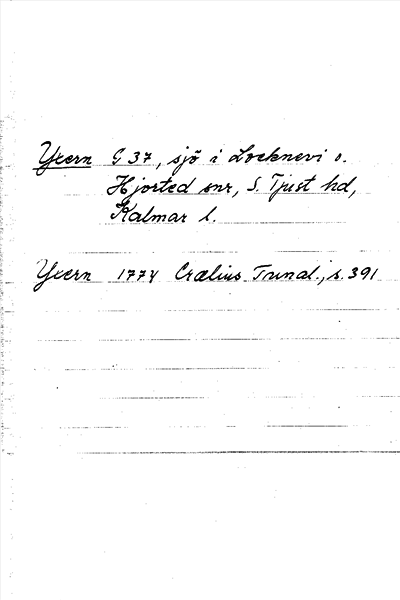 Yxern G 37, sjö i Locknevi o.
Hjorted snr, S. Tjust hd,
Kalmar l.
Yxern 1774 Crælius Tunal., s. 391